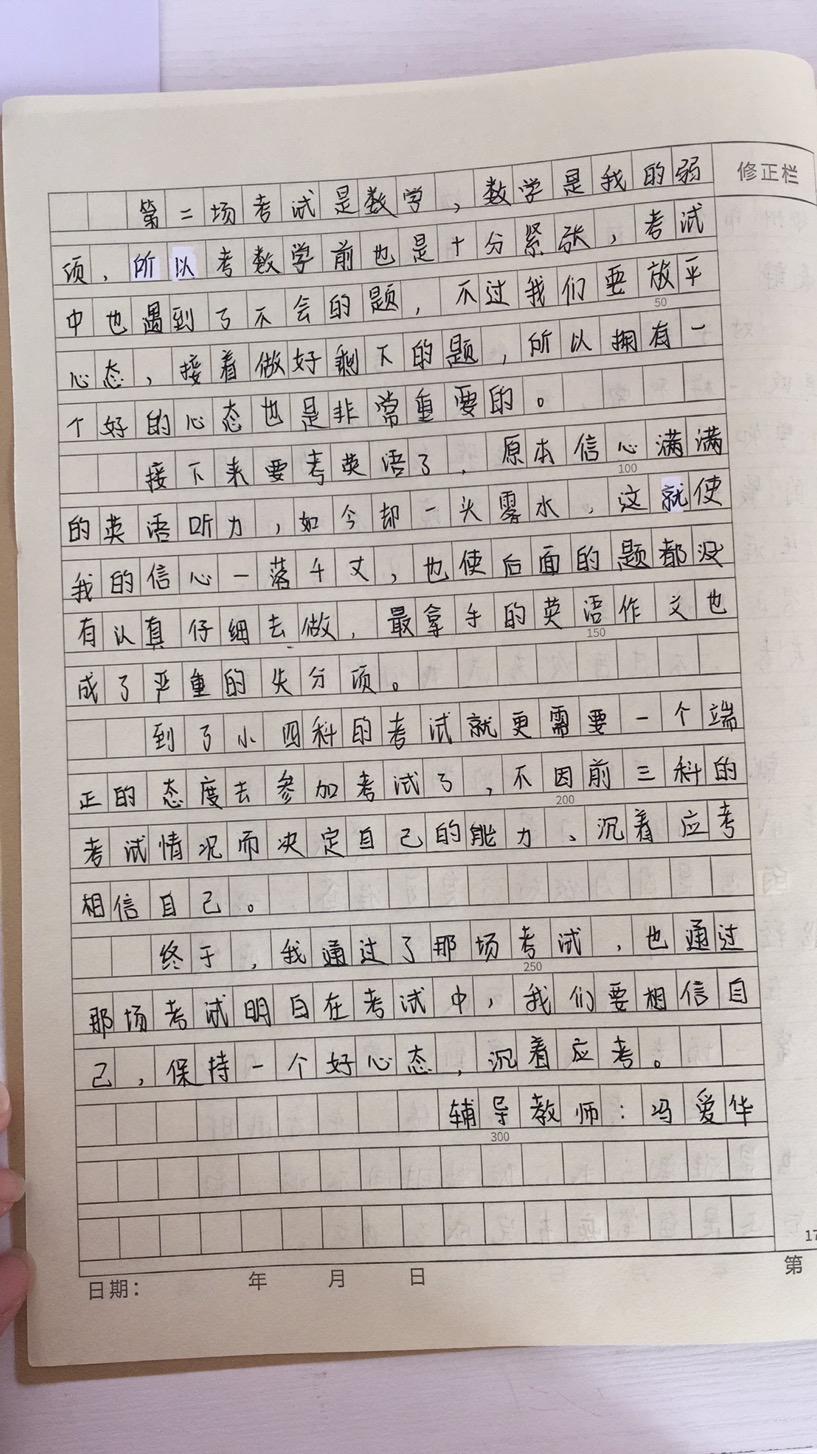 修正栏
第二场考试是数学，数学是我的弱
项，所以考数学前也是十分紧张，考试
中也遇到了不会的题，不过我们要放平
50
心态，接着做好剩下的题，所以拥有一
个好的心态也是非常重要的。
接下来要考英语了，原本信心满满
100
的英语听力，如今却一头雾水，这就使
我的信心一落千丈，也使后面的题都没
有认真仔细去做，最拿手的英语作文也
150
成了严重的失分项。
到了小四科的考试就更需要一个端
正的态度去参加考试了，不因前三科的
200
考试情况而决定自己的能力、沉着应考
相信自己。
终于，我通过了那场考试，也通过
250
那场考试明白在考试中，我们要相信自
己，保持一个好心态，沉着应考。
辅导教师：冯爱华
300
17
日期： 年 月 日 第